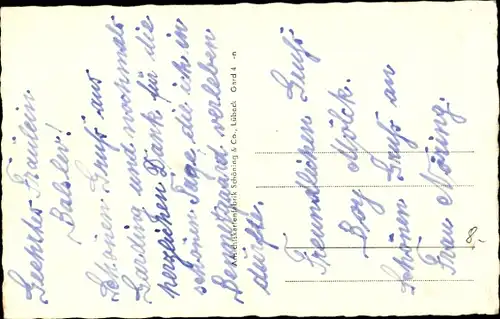 Geehrtes Fräulein
Balster!
Schönen Gruß aus
Garding und nochmals
herzlichen Dank für die
schönen Tage die ich in
verleben
durfte.
Freundlichen Gruß
Boy
Schönen Gruß an
Frau Nöring.
Ansichtskartenfabrik Schöning & Co., Lübeck Gard 4 n
8,